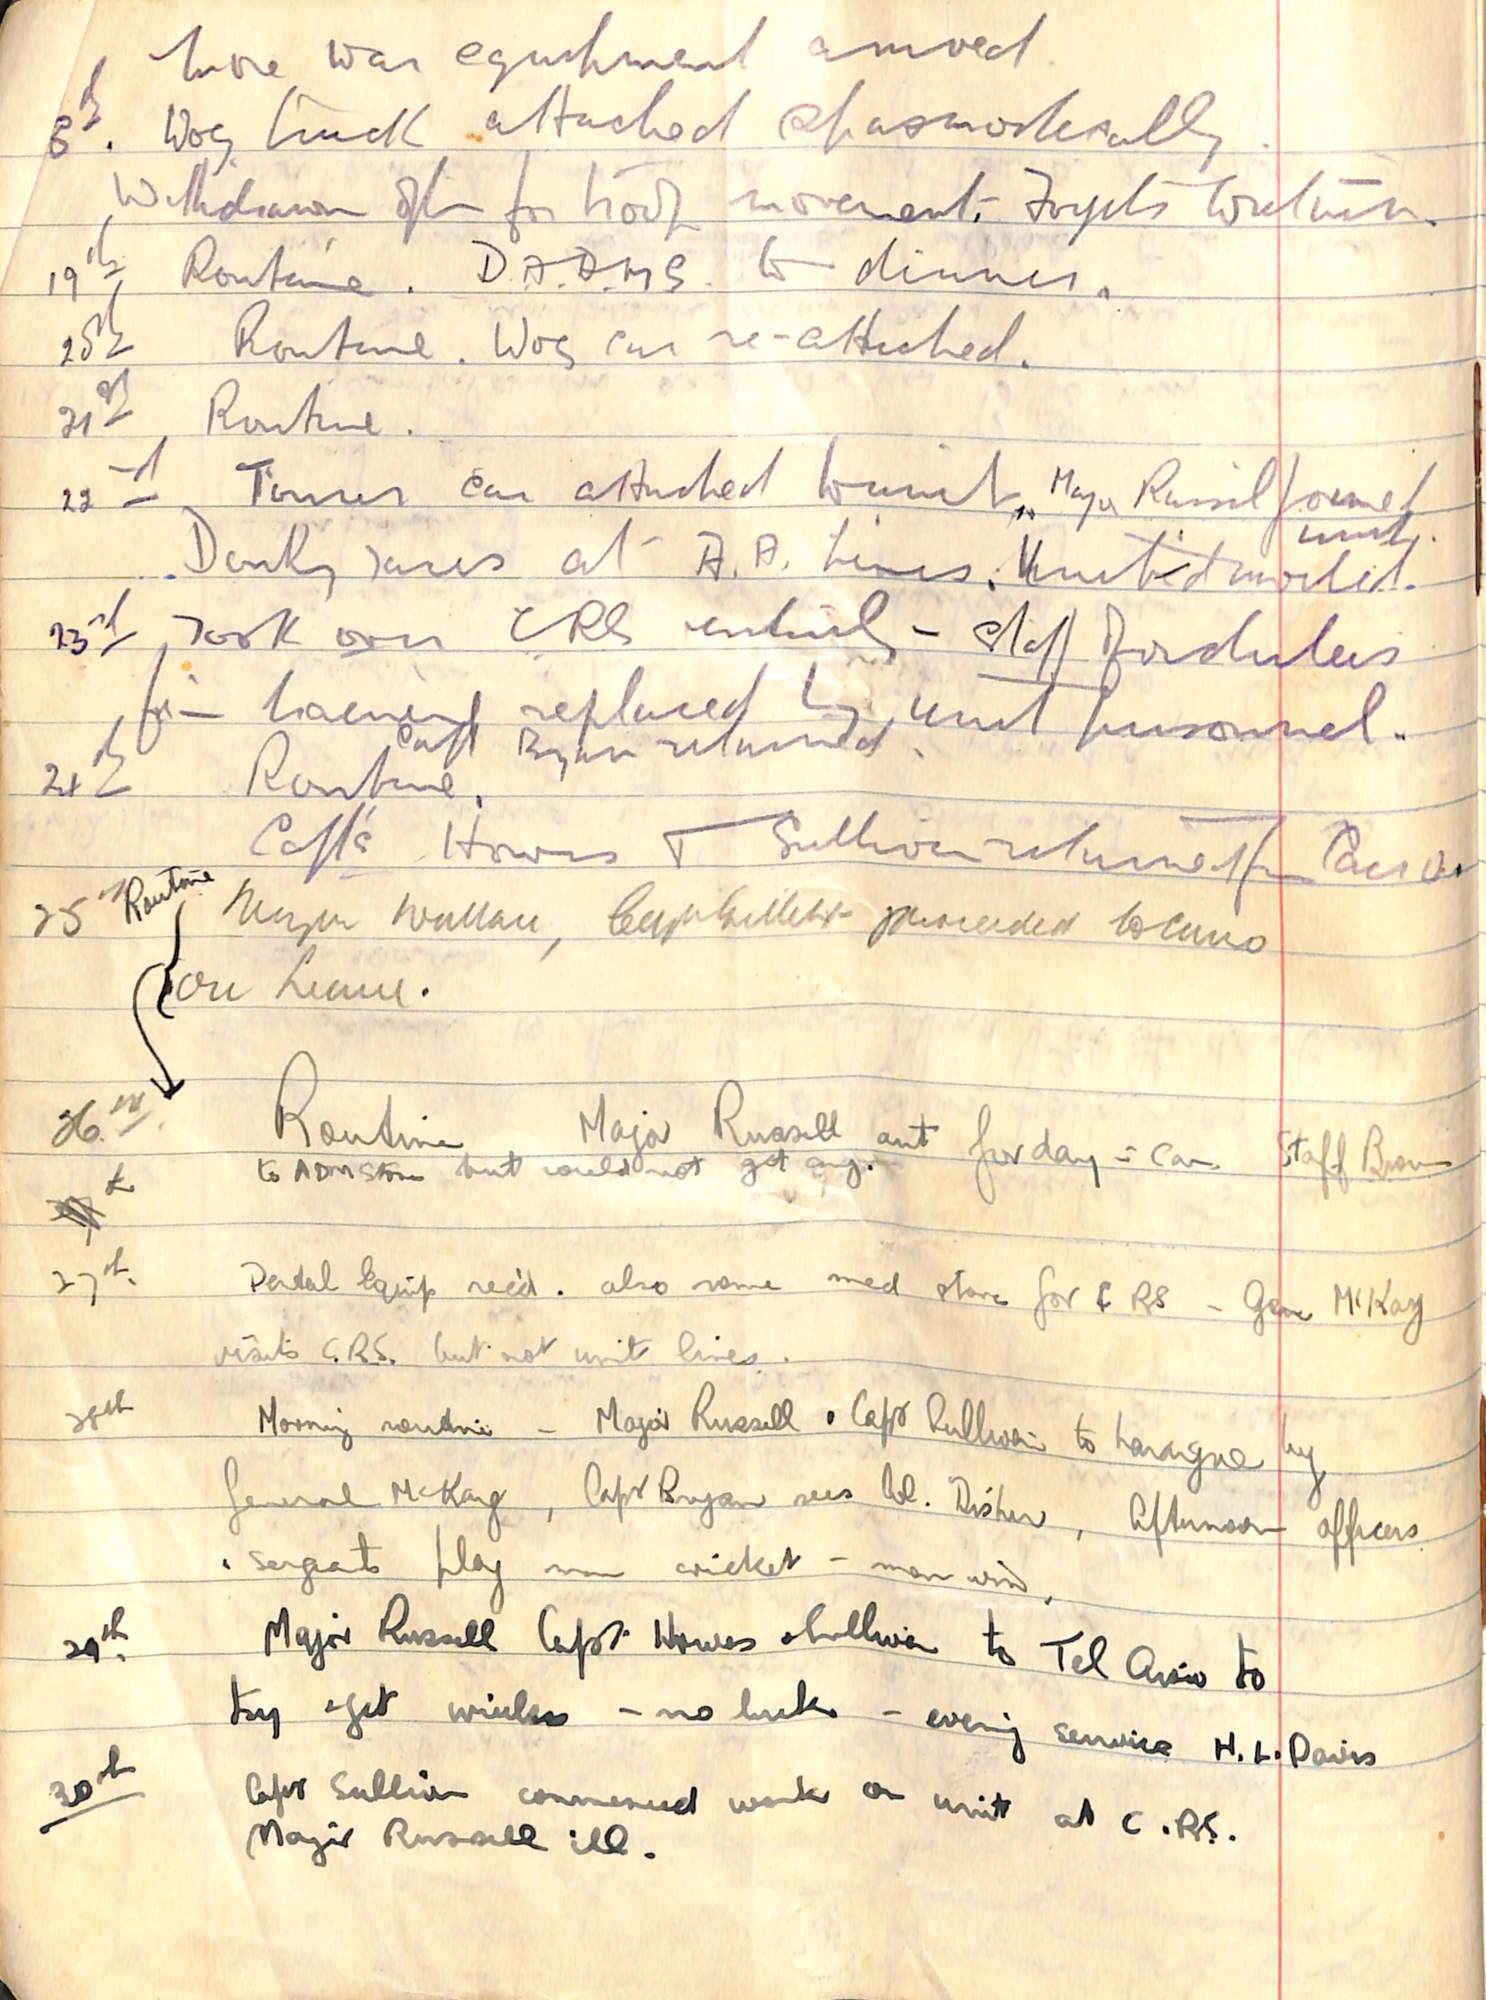 more war equipment arrived
8th. Wog truck attached spasmodically.
Withdrawn often for troop movement. Forgets to return.
19th Routine. D.A.D.M.S. to dinner.
20th Routine. Wog car re-attached.
21st Routine.
22nd Tourer car attached to unit. Major Russell joined
unit.
Donkey races at A.A. Lines. Unit invited.
23rd Took over CRS entirely - staff
for training replaced by unit personnel.
Capt Bryan returned.
24th Routine.
Capts Howes & Sullivan returned from Cairo.
25th Routine Major Wallace, Capt Gillett proceeded to Cairo
on leave.
26th. Routine Major Russell out for day in car Staff Brown
to ADMS Store but could not get any.
th
27th. Dental Equip rec'd. also some med store for C RS - Gen McKay
visits C.R.S. but not unit lines.
28th Morning routine - Major Russell & Capt Sullivan to harangue by
General McKay, Capt Bryan sees Col. Disher, Afternoon officers
& sergeants play men cricket - men win.
29th. Major Russell Capt Howes & Sullivan to Tel Aviv to
try & get wireless - no luck - evening service H.L. Davis
30th Capt Sullivan commenced work on unit at C.RS.
Major Russell ill.